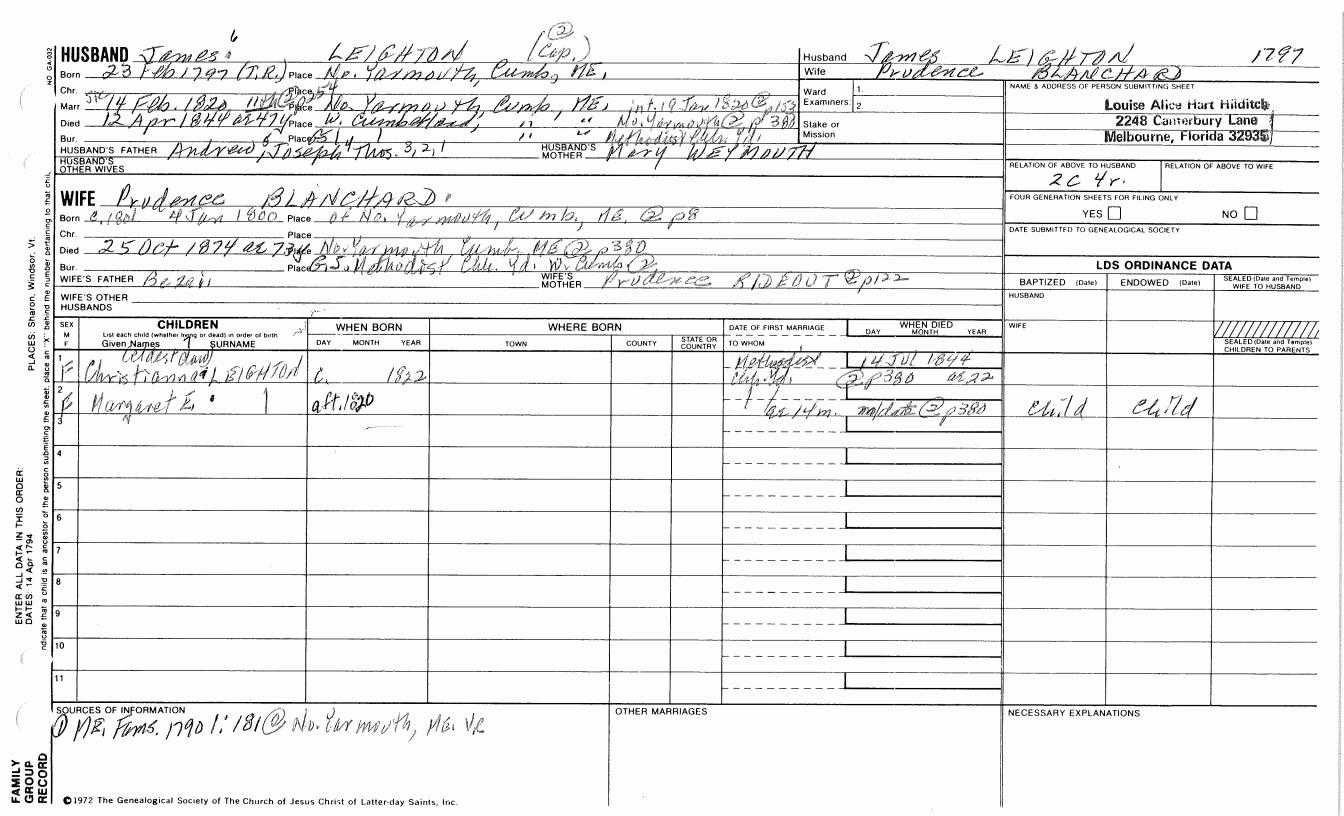 6
HUSBAND James LEIGHTON (② Cap.)
Born 23 Feb 1797 (T.R.) Place No. Yarmouth, Cumb, ME,
Chr. Place
Marr 14 Feb. 1820 Place No. Yarmouth, Cumb, ME, int. 19 Jan 1820 ② p153
Died 12 Apr 1844 ae 47y Place W. Cumberland, " " No. Yarmouth ② p 380
Bur. Place " " Methodist
HUSBAND'S FATHER Andrew 5, Joseph 4 Thos. 3, 2, 1 HUSBAND'S MOTHER Mary WEYMOUTH
HUSBAND'S OTHER WIVES
WIFE Prudence BLANCHARD
Born c. 1801 4 Jan 1800 Place of No. Yarmouth, Cumb, ME, ② p8
Chr. Place
Died 25 Oct 1874 ae 73y Place No. Yarmouth Cumb, ME ② p380
Bur. Place G.S. Methodist Yd. W. Cumb ②
WIFE'S FATHER WIFE'S MOTHER Prudence RIDEOUT ② p122
WIFE'S OTHER HUSBANDS
Husband James LEIGHTON 1797
Wife Prudence BLANCHARD
NAME & ADDRESS OF PERSON SUBMITTING SHEET
Ward Examiners: 1. 2.
Stake or Mission
Louise Alice Hart Hilditch
2248 Canterbury Lane
Melbourne, Florida 32935
RELATION OF ABOVE TO HUSBAND RELATION OF ABOVE TO WIFE
2C 4r.
FOUR GENERATION SHEETS FOR FILING ONLY
YES NO
DATE SUBMITTED TO GENEALOGICAL SOCIETY
LDS ORDINANCE DATA
BAPTIZED (Date) ENDOWED (Date) SEALED (Date and Temple) WIFE TO HUSBAND
HUSBAND
WIFE
SEALED (Date and Temple) CHILDREN TO PARENTS
SEX M F CHILDREN WHEN BORN WHERE BORN DATE OF FIRST MARRIAGE WHEN DIED
List each child (whether living or dead) in order of birth
Given Names SURNAME DAY MONTH YEAR TOWN COUNTY STATE OR COUNTRY TO WHOM DAY MONTH YEAR
1 (eldest dau) Methodist 14 Jul 1844
F Christianna LEIGHTON c. 1822 ② p380 ae 22
2 F Margaret E. aft. 1820 ae 14 m. no date ② p380 Child Child
3
4
5
6
7
8
9
10
11
SOURCES OF INFORMATION OTHER MARRIAGES NECESSARY EXPLANATIONS
① ME. Fams. 1790 1:181 ② No. Yarmouth, ME. VR
©1972 The Genealogical Society of The Church of Jesus Christ of Latter-day Saints, Inc.
NO GA-002
PLACES: Sharon, Windsor, Vt.
ENTER ALL DATA IN THIS ORDER:
DATES: 14 Apr 1794
ndicate that a child is an ancestor of the person submitting the sheet, place an "X" behind the number pertaining to that chil.
FAMILY GROUP RECORD